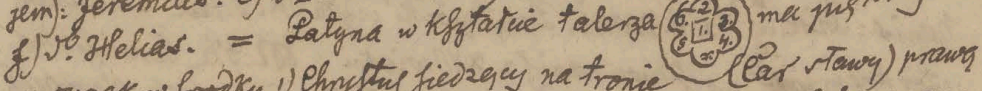 jem): Jeremias.
f) So. Helias. = Patyna w kształcie talerza 6. 2. 1. 3. 5. 4. ma
Chrystus siedzący na tronie (Car sławy) prawą